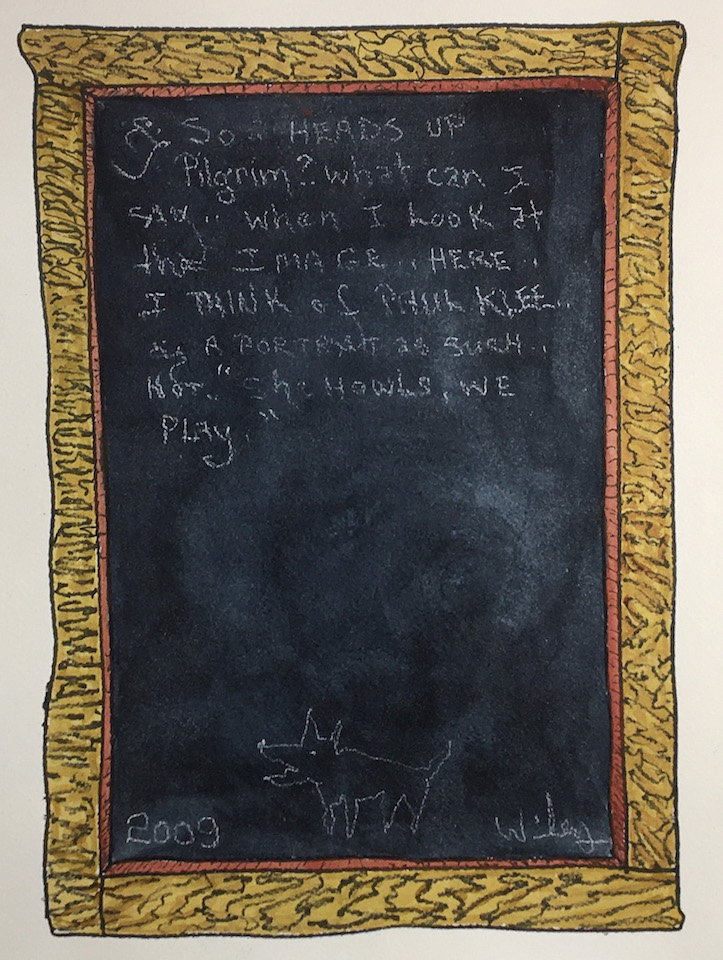 & So HEADS UP
Pilgrim? what can I
SAY.. when I Look at
the IMAGE.. HERE..
I THINK of PAUL KLEE..
as A PORTRAIT as such..
Not.. "She HowLs, WE
PLAY."
2009 Wiley